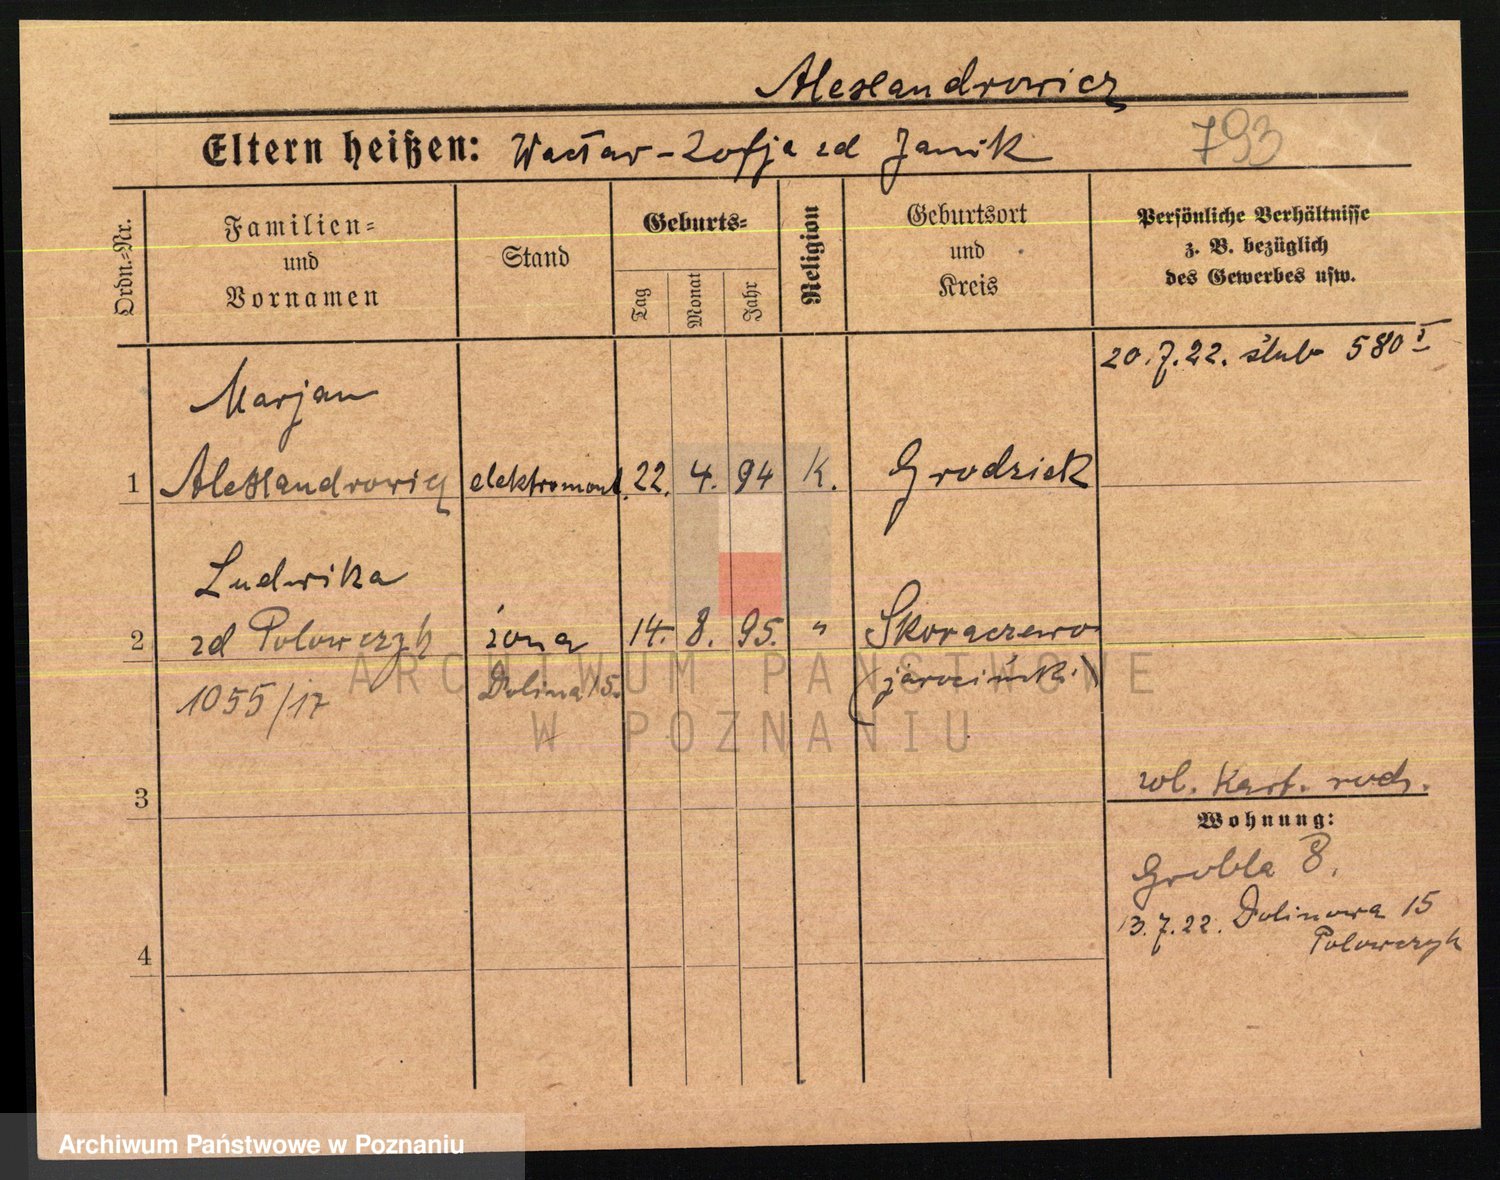 Aleksandrowicz
Eltern heißen: Wacław - Zofja zd Janik 793
Ordn.-Nr.
Familien=
und
Vornamen
Stand
Geburts=
Tag
Monat
Jahr
Religion
Geburtsort
und
Kreis
Persönliche Verhältnisse
z. B. bezüglich
des Gewerbes usw.
20.7.22. ślub 580
Marjan
1 Aleksandrowicz elektromont. 22. 4. 94 K. Grodzisk
Ludwika
2 zd Polowczyk żona 14. 8. 95. " Skoraczewo
1055/17 Dolina 15. (jarociński)
3
zol. Kart. rodz.
Wohnung:
Grobla 8.
13.7.22. Dolinowa 15
Polowczyk
4
ARCHIWUM PAŃSTWOWE
W POZNANIU
Archiwum Państwowe w Poznaniu